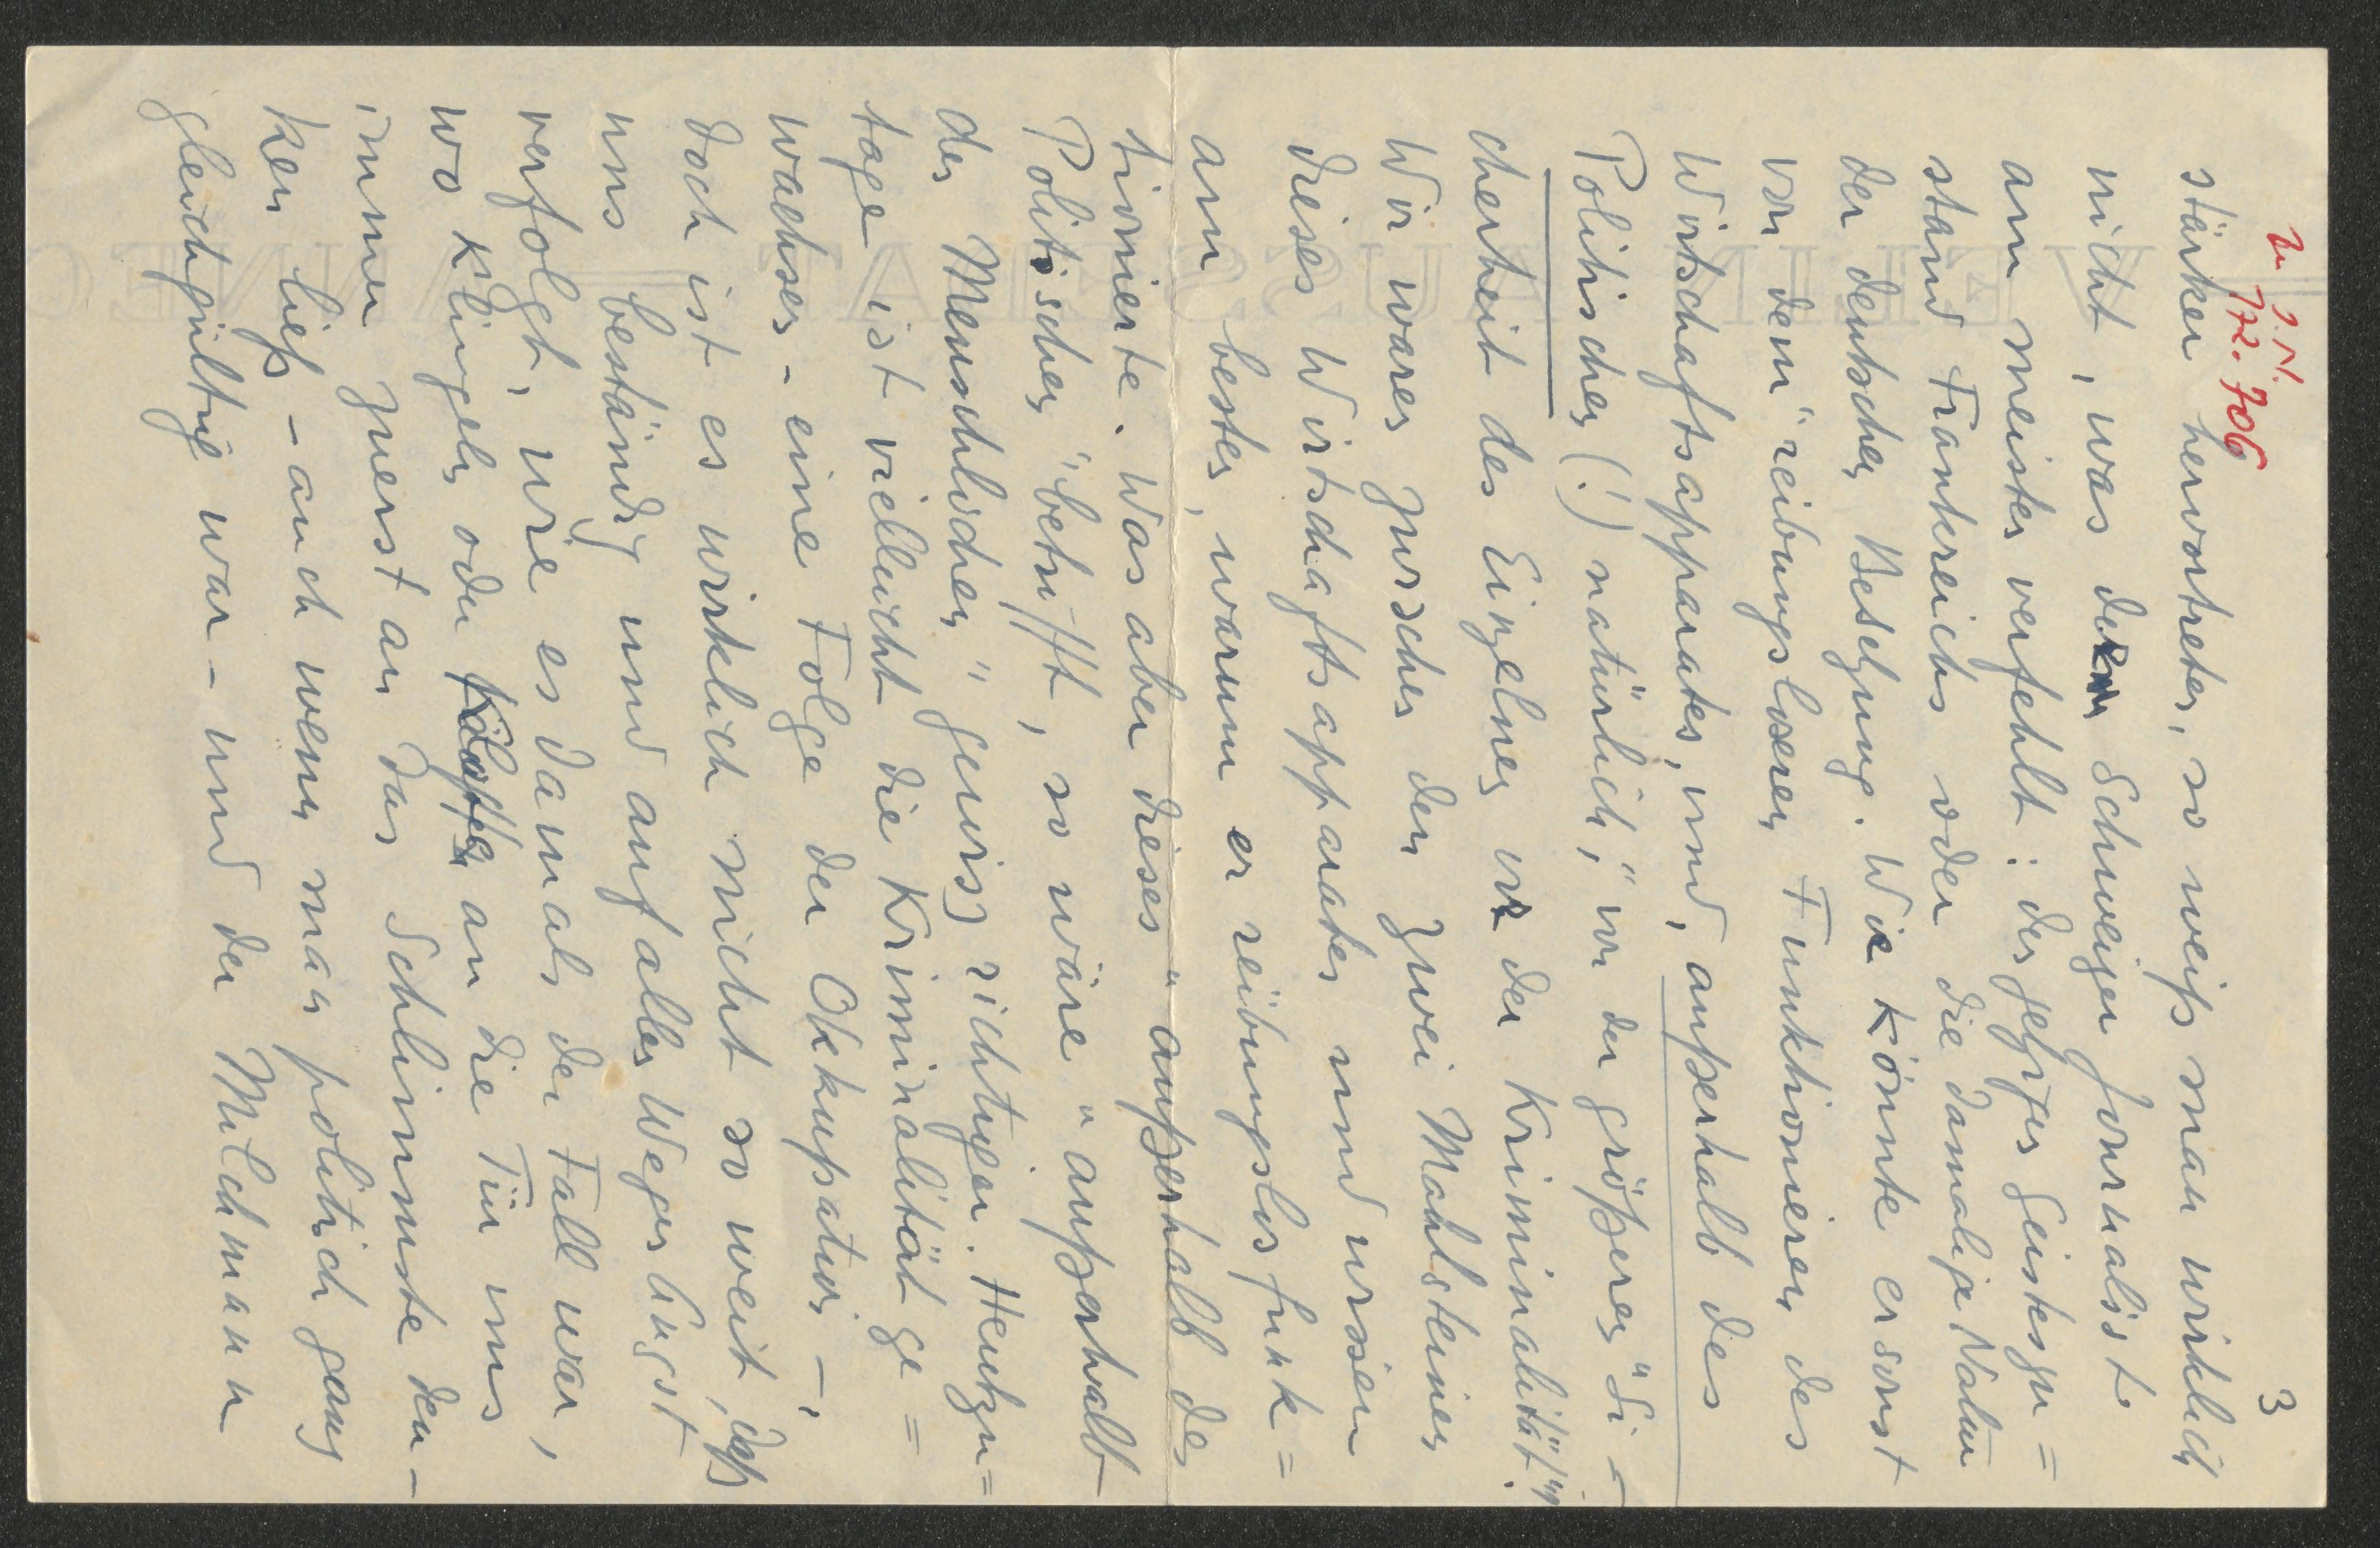 zu I.N.
172.706
3
stärker hervortreten, so weiß man wirklich
nicht, was dem Schweizer Journalist
am meisten verfehlt: der jetztes Geistezu=
stand Frankreichs oder die damalige Natur
der deutschen Besetzung. Wie könnte er sonst
von dem "reibungsloseren Funktionieren des
Wirtschaftsapparates, und, außerhalb des
Politischen (!) natürlich," von der größeren "Si-
cherheit des Einzelnen vor der Kriminalität".
Wir waren zwischen den zwei Mahlsteinen
dieses Wirtschaftsapparates und wissen
am besten, warum er reibungslos funk=
tionierte. Was aber dieses "außerhalb des
Politischen" betrifft, so wäre "außerhalb
des Menschlichen" gewiss richtiger. Heutzu=
tage ist vielleicht die Kriminalität ge=
wachsen - eine Folge der Okkupation -,
doch ist es wirklich nicht so weit, daß
uns beständig und auf allen Wegen Angst
verfolgt, wie es damals der Fall war,
wo Klingeln oder Klopfen an die Tür uns
immer zuerst an das Schlimmste den-
ken ließ - auch wenn man politich ganz
gleichgültig war - und der Milchmann